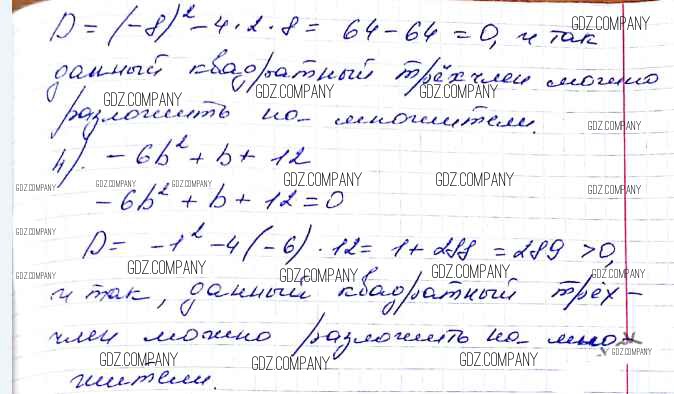 D = (-8)² - 4 · 2 · 8 = 64 - 64 = 0, и так
GDZ.COMPANY
данный квадратный трёхчлен можно
GDZ.COMPANY GDZ.COMPANY GDZ.COMPANY GDZ.COMPANY
разложить на множители.
GDZ.COMPANY
4). -6b² + b + 12
GDZ.COMPANY GDZ.COMPANY GDZ.COMPANY GDZ.COMPANY GDZ.COMPANY GDZ.COMPANY
-6b² + b + 12 = 0
GDZ.COMPANY
D = -1² - 4(-6) · 12 = 1 + 288 = 289 > 0,
GDZ.COMPANY GDZ.COMPANY GDZ.COMPANY GDZ.COMPANY GDZ.COMPANY
и так, данный квадратный трёх-
член можно разложить на мно-
GDZ.COMPANY GDZ.COMPANY GDZ.COMPANY GDZ.COMPANY
жители.